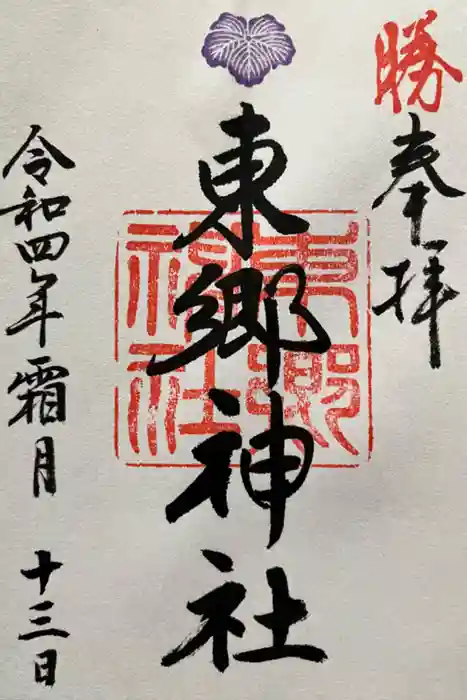 勝
奉拝
東郷神社
東郷
神社
令和四年霜月十三日